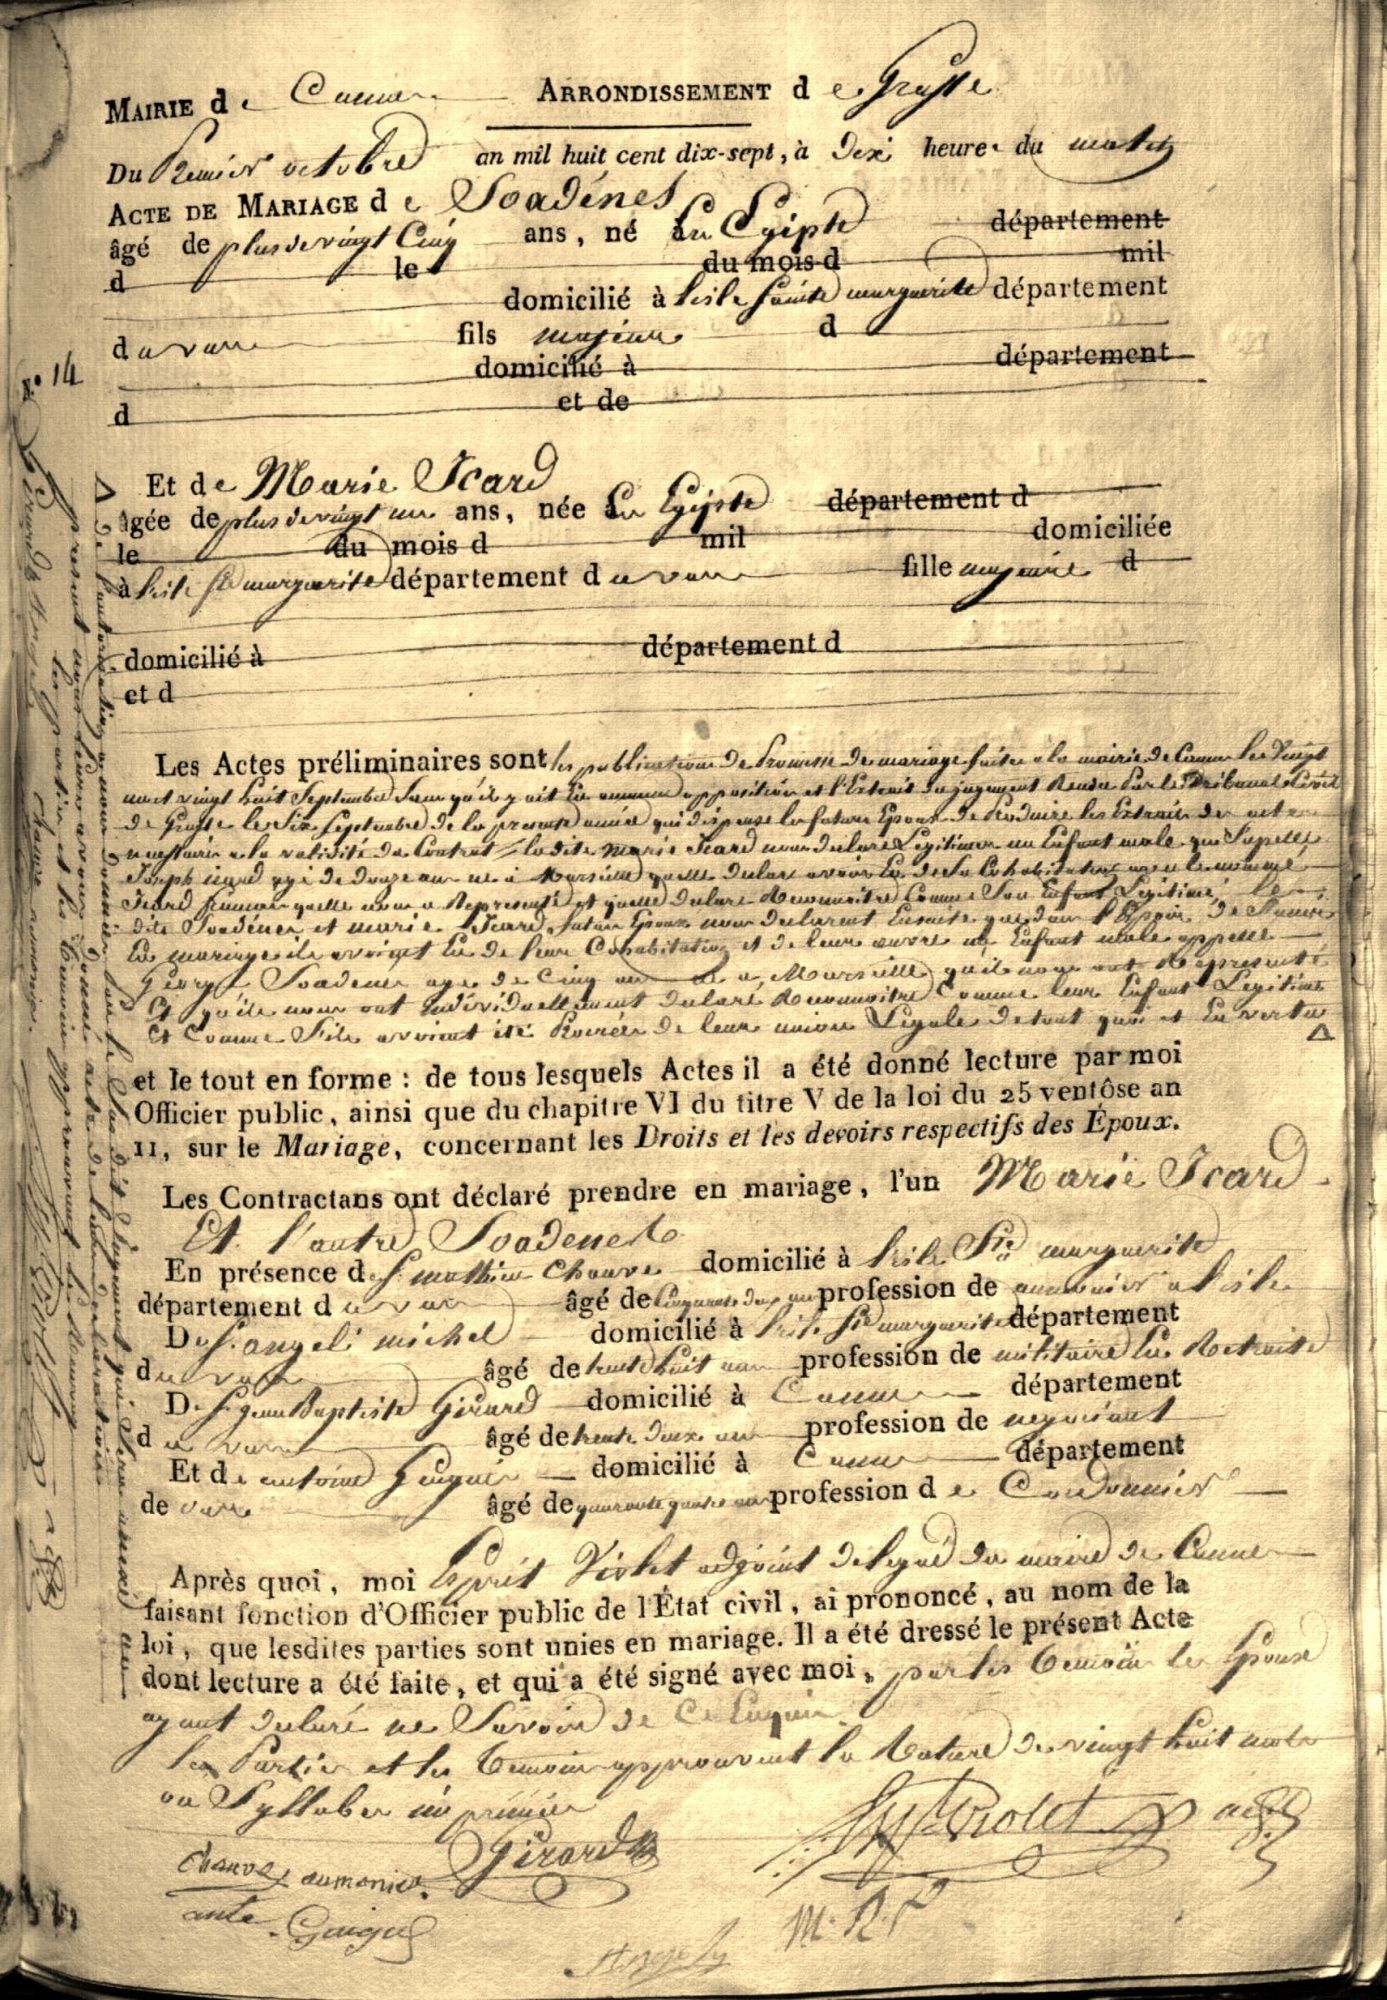 MAIRIE de Cannes ARRONDISSEMENT de Grasse
Du Premier octobre an mil huit cent dix-sept, à dix heures du matin
ACTE DE MARIAGE de Soadénes
âgé de plus de vingt Cinq ans, né En Egipte département
d le du mois d mil
domicilié à l'isle Sainte marguerite département
du var fils majeur d
domicilié à département
d et de
N.° 14
Et de Marie Icard
âgée de plus de vingt un ans, née En Egipte département d
le du mois d mil domiciliée
à l'isle Ste marguerite département du var fille majeure d
domicilié à département d
et d
Les Actes préliminaires sont les publications de Promesse de mariage faites a la mairie de Cannes les Vingt
un et vingt huit Septembre Sans qu'il y ait Eu aucune opposition et l'Extrait du jugement Rendu Par le Tribunal Civil
de Grasse le Six Septembre de la presente année qui dispense les futurs Epoux de Produire les Extraits des actes
necessaires a la validité du Contrat, ladite Marie Icard nous declare Légitimer un Enfant male qui S'apelle
Joseph icard agé de douze ans né à Marseille quelle declare avoir Eu de Sa Cohabitation avec le nommé
Icard quelle nous a Representé et quelle declare Reconnoitre Comme Son Enfant Légitime, les
dits Soadénes et marie Icard futurs Epoux nous declarent Ensuite que dans l'Espoir de S'unir
En mariage ils avoient Eu de leur Cohabitation et de leur œuvre un Enfant male appellé
George Soadenes agé de Cinq ans né a Marseille qu'il nous ont Representé
Et qu'ils nous ont individuellement declaré Reconnoitre Comme leur Enfant Legitime
Et Comme S'ils avoient été Procréés de leur union Légale de tout quoi et En vertu Δ
et le tout en forme : de tous lesquels Actes il a été donné lecture par moi
Officier public, ainsi que du chapitre VI du titre V de la loi du 25 ventôse an
11, sur le Mariage, concernant les Droits et les devoirs respectifs des Époux.
Les Contractans ont déclaré prendre en mariage, l'un Marie Icard
Et l'autre Soadenes
En présence de Sr mathieu Chauve domicilié à l'isle Ste marguerite
département du var âgé de Cinquante deux ans profession de aumonier a l'isle
De Sr angeli michel domicilié à l'isle Ste marguerite département
du var âgé de trente huit ans profession de militaire En Retraite
De Sr jean Baptiste Girard domicilié à Cannes département
du var âgé de trente deux ans profession de negociant
Et de antoine Guigues domicilié à Cannes département
de var âgé de quarante quatre ans profession de Cordonnier
Après quoi, moi Esprit Violet adjoint delegué du maire de Cannes
faisant fonction d'Officier public de l'État civil, ai prononcé, au nom de la
loi, que lesdites parties sont unies en mariage. Il a été dressé le présent Acte
dont lecture a été faite, et qui a été signé avec moi, par les temoins les Epoux
ayant declaré ne Savoir de Ce Enquis
les Parties et les temoins approuvent la Rature de vingt huit mots
ou Syllabes imprimées
Girard
Chauve aumonier
ante Guigues
Angely
M. R. F
Espt Violet adj
Δ de l'autorisation a nous donnée Par le Susdit jugement qui Sera annexé au
present nous leurs avons donné acte de leurs declarations
les parties et les temoins approuvant le Renvoy
Girard Angely
chauve aumonier